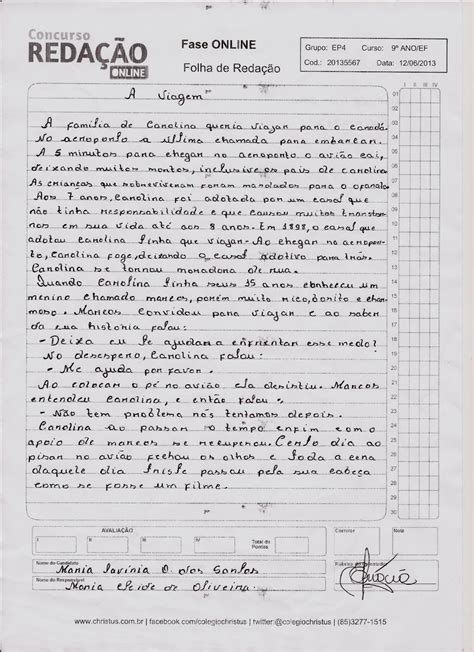 Concurso
REDAÇÃO
ONLINE
Fase ONLINE
Folha de Redação
Grupo: EP4 Curso: 9º ANO/EF
Cod.: 20135567 Data: 12/06/2013
I II III IV
A Viagem
A família de Carolina queria viajar para o Canadá.
No aeroponto a última chamada para embarcar.
A 5 minutos para chegar no aeroponto o avião cai,
deixando muitos mortos, inclusive os pais de carolina.
As crianças que sobreviveram foram mandados para o ofanato.
Aos 7 anos, Carolina foi adotada por um casal que
não tinha responsabilidade e que causou muitos transtor-
nos em sua vida até aos 8 anos. Em 1898, o casal que
adotou Carolina tinha que viajar. Ao chegar no aeropon-
to, Carolina foge, deixando o casal adotivo para trás.
Carolina se tornou moradora de rua.
Quando Carolina tinha seus 15 anos conheceu um
menino chamado marcos, porém muito rico, bonito e char-
moso. Marcos Convidou para viajar e ao saber
da sua história falou:
- Deixa eu te ajudar a enfrentar esse medo!
No desespero, Carolina falou:
- Me ajuda por favor.
Ao colocar o pé no avião ela desistiu. Marcos
entendeu Carolina, e então falou:
- Não tem problema nós tentamos depois.
Carolina ao passar o tempo enfim com o
apoio de marcos se recuperou. Certo dia ao
pisar no avião fechou os olhos e toda a cena
daquele dia triste passou pela sua cabeça
como se fosse um filme.
01
02
03
04
05
06
07
08
09
10
11
12
13
14
15
16
17
18
19
20
21
22
23
24
25
26
27
28
29
30
AVALIAÇÃO
I II III IV
Total de Pontos
Corretor
Nota
Nome do Candidato
Maria Lavínia O. dos Santos
Nome do Responsável
Maria Cleide de Oliveira
www.christus.com.br | facebook.com/colegiochristus | twitter:@colegiochristus | (85)3277-1515